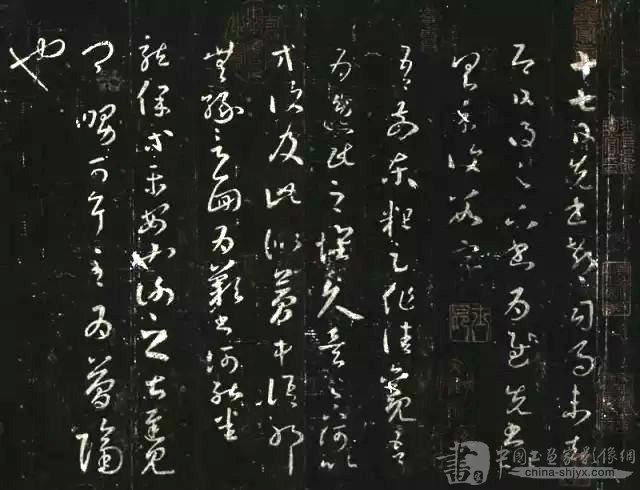 十七日先書郗司馬未去
即日得足下書為慰先書
以具示復數字
吾前東粗足作佳觀吾
為逸民之懷久矣足下何以
方復及此似夢中語耶
無緣言面為歎書何能悉
龍保等平安也謝之甚遲見
卿舅可耳至為簡隔
也
中国书画家影像網
china-shjyx.com